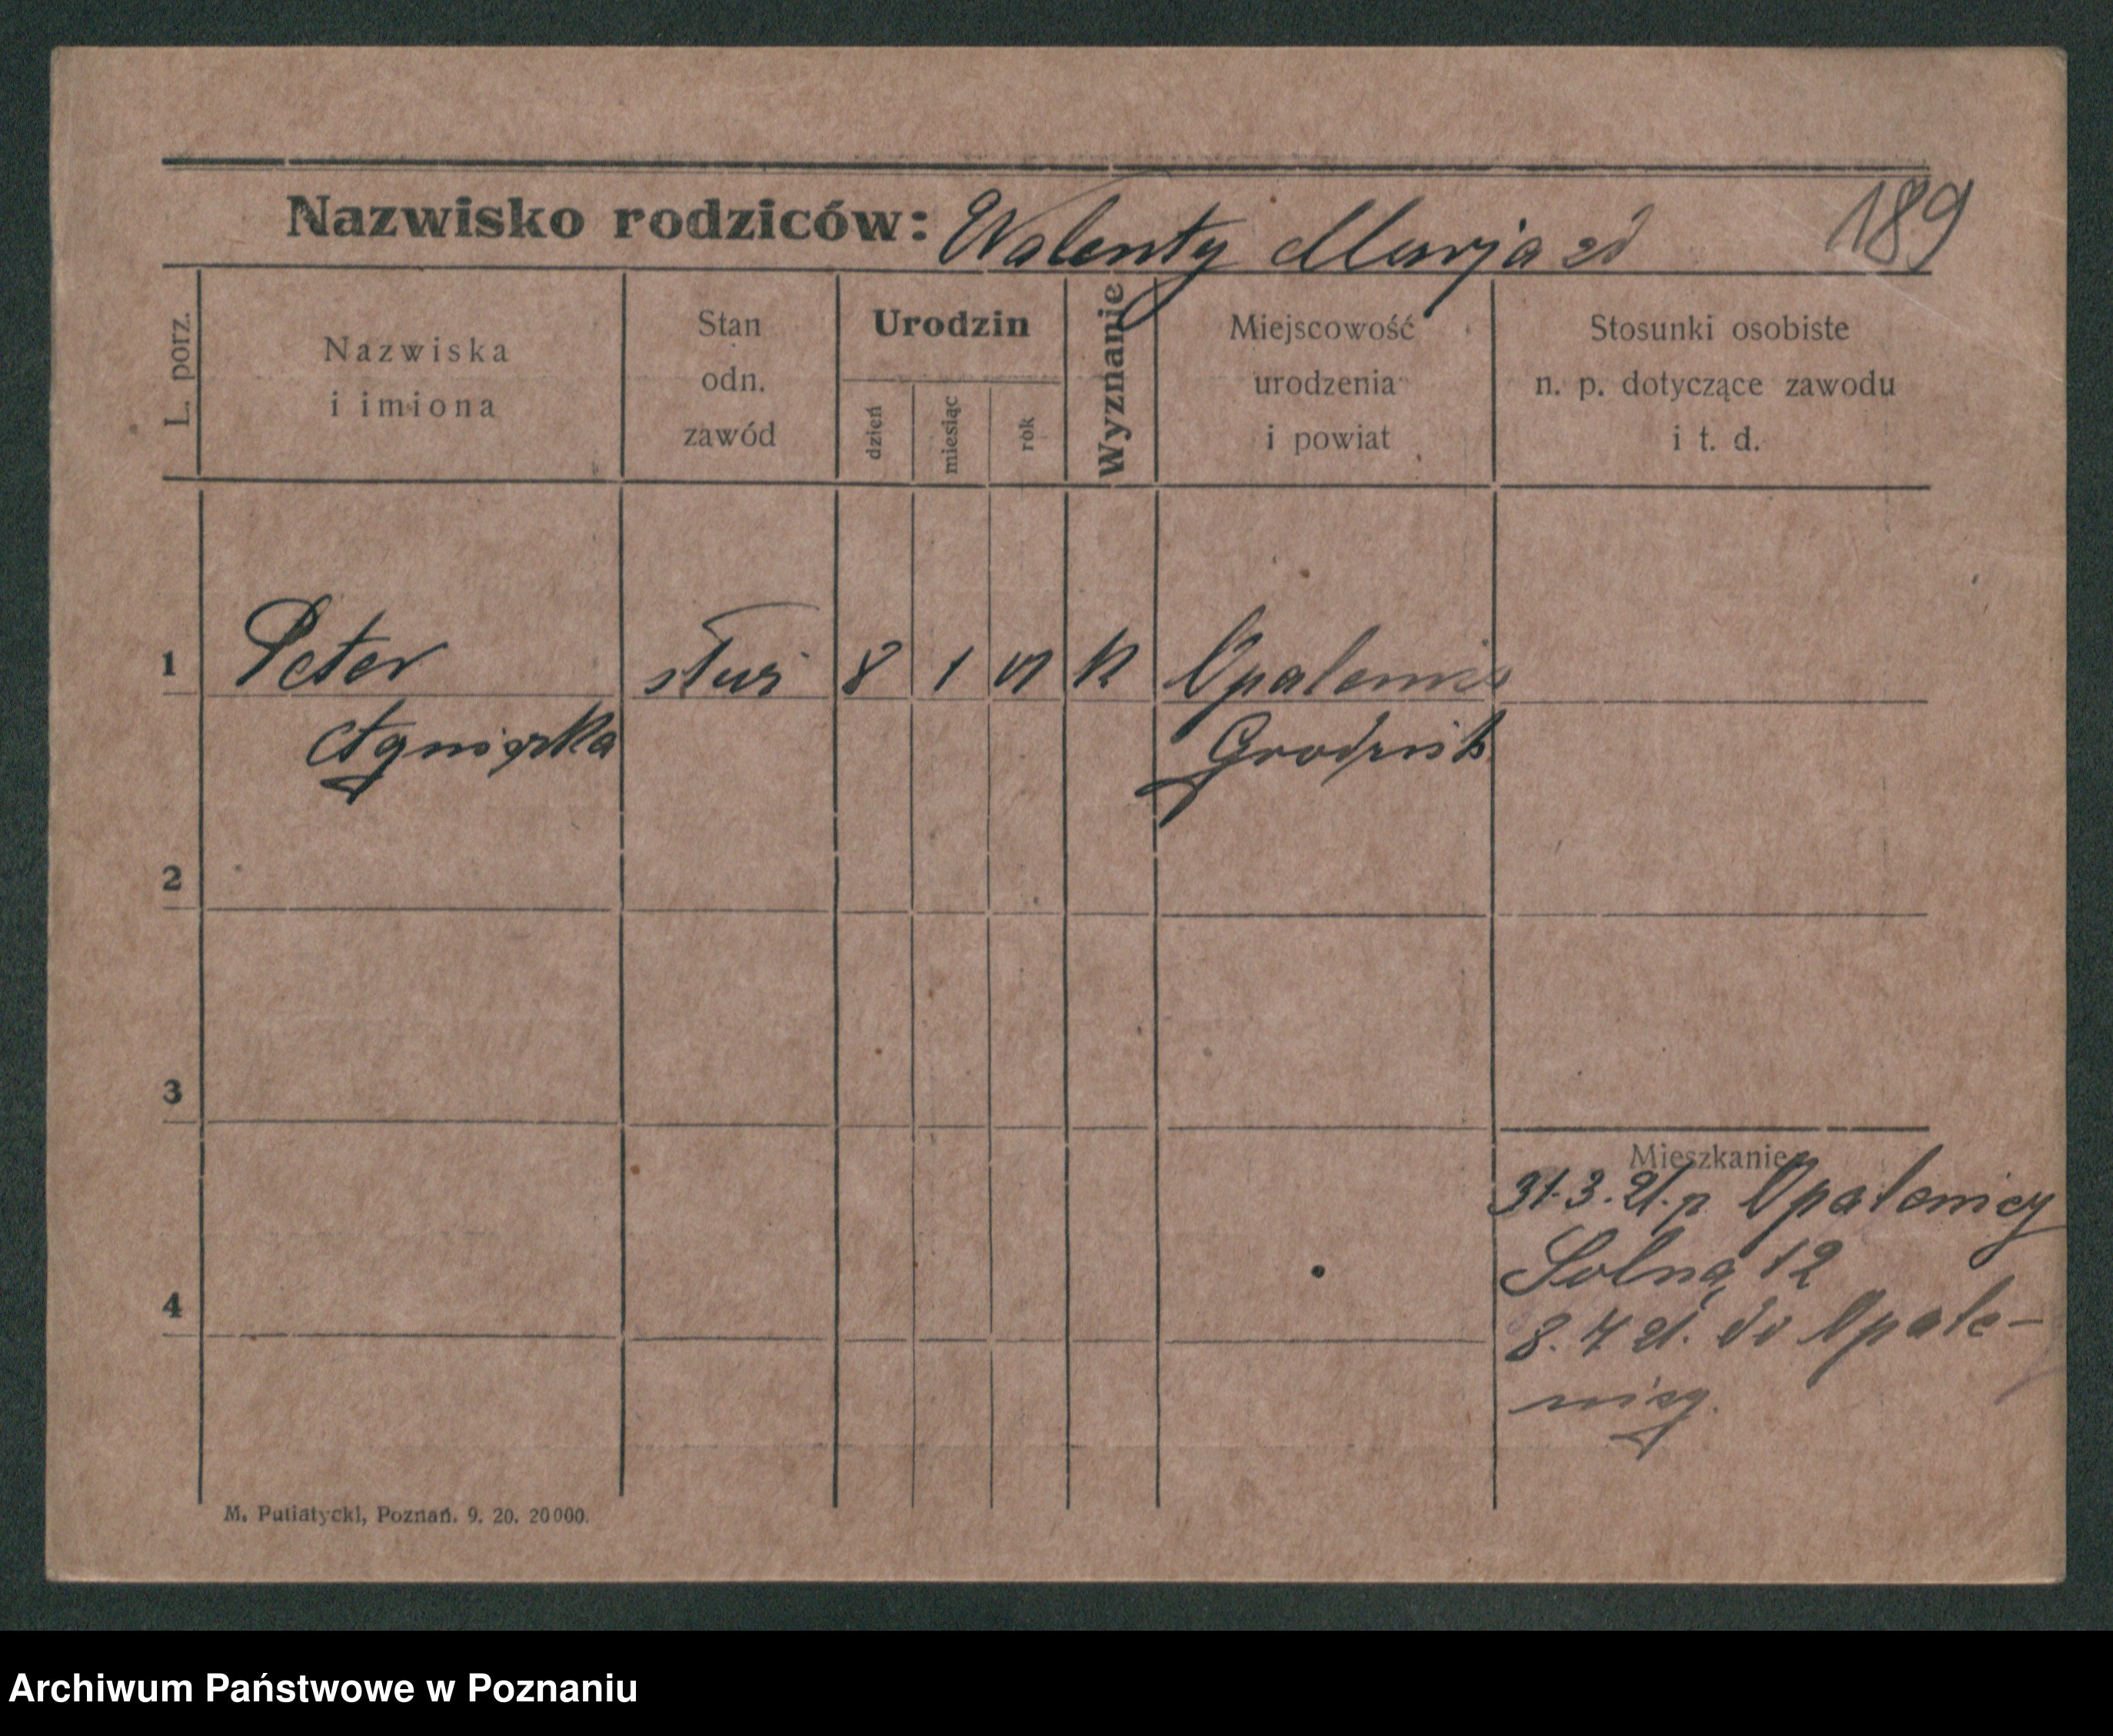 189
Nazwisko rodziców: Walenty Marja
L. porz.
Nazwiska
i imiona
Stan
odn.
zawód
Urodzin
dzień
miesiąc
rok
Wyznanie
Miejscowość
urodzenia
i powiat
Stosunki osobiste
n. p. dotyczące zawodu
i t. d.
1 Peter służ 8 1 K Opalenica
Agnieszka Grodzisk
2
3
4
Mieszkanie
31.3.21. z Opalenicy
Solna 12
8.7.21. do Opale-
nicy.
M. Putiatycki, Poznań. 9. 20. 20000.
Archiwum Państwowe w Poznaniu